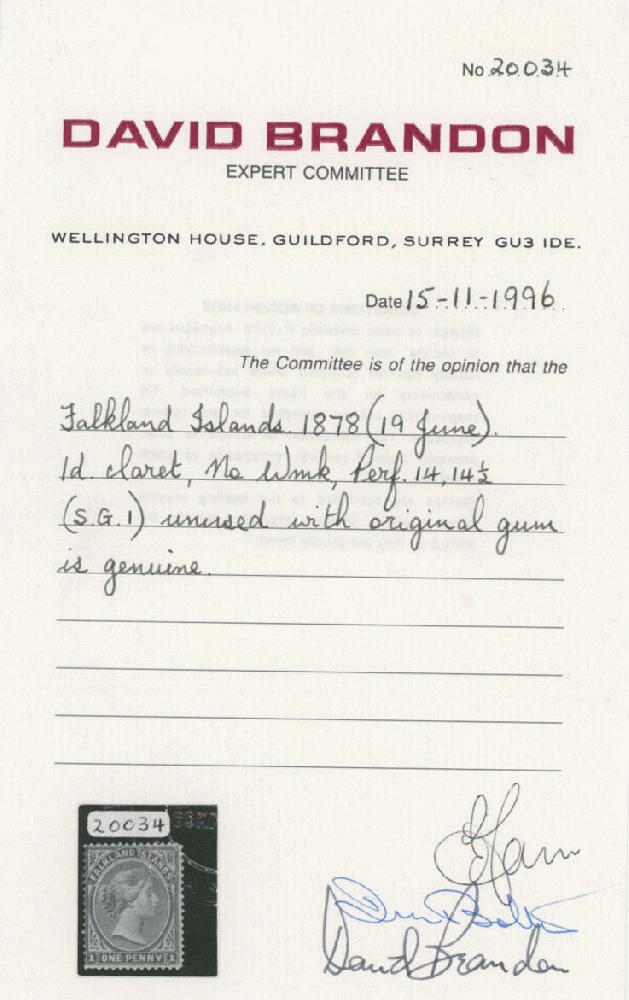 No. 20034
DAVID BRANDON
EXPERT COMMITTEE
WELLINGTON HOUSE, GUILDFORD, SURREY GU3 IDE.
Date 15-11-1996
The Committee is of the opinion that the
Falkland Islands. 1878 (19 June).
1d. claret, No Wmk, Perf. 14, 14½
(S.G. 1) unused with original gum
is genuine.
20034
FALKLAND ISLANDS
1 ONE PENNY 1
David Brandon